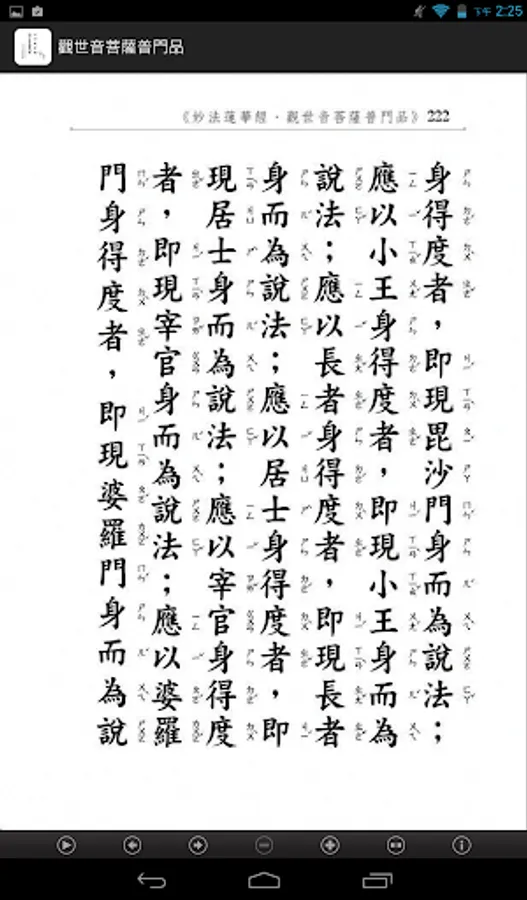 下午 2:25
觀世音菩薩普門品
《妙法蓮華經·觀世音菩薩普門品》 222
身得度者，即現毘沙門身而為說法；
應以小王身得度者，即現小王身而為
說法；應以長者身得度者，即現長者
身而為說法；應以居士身得度者，即
現居士身而為說法；應以宰官身得度
者，即現宰官身而為說法；應以婆羅
門身得度者，即現婆羅門身而為說